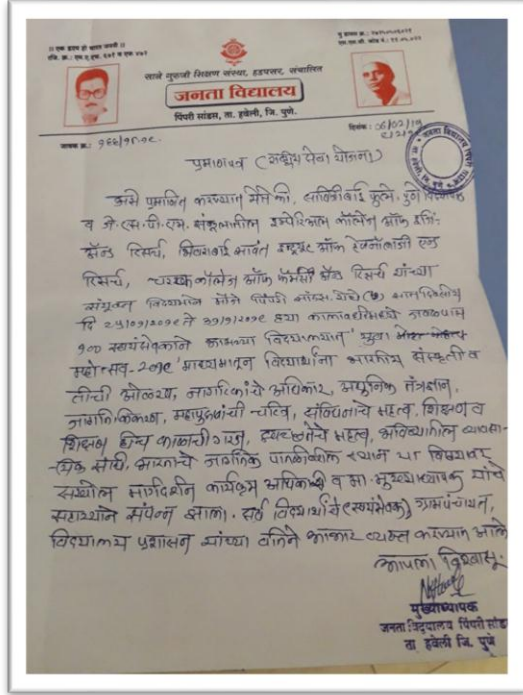 ॥ एक हृदय हो भारत जननी ॥
साने गुरुजी शिक्षण संस्था, हडपसर, संचालित
जनता विद्यालय
पिंपरी सांडस, ता. हवेली, जि. पुणे.
जावक क्र.:
दिनांक :
प्रमाणपत्र (राष्ट्रीय सेवा योजना)
असे प्रमाणित करण्यात येते की, सावित्रीबाई फुले, पुणे विद्यापीठ
व जे.एस.पी.एम. संकुलातील इम्पेरिअल कॉलेज ऑफ इंजि.
अँड रिसर्च, भिवराबाई सावंत ऑफ टेक्नॉलॉजी एन्ड
रिसर्च, कॉलेज ऑफ कॉमर्स अँड रिसर्च यांच्या
संयुक्त विद्यमाने मौजे पिंपरी सांडस येथे (७) सात दिवसीय
दि २५/०१/२०१९ ते ३१/१/२०१९ ह्या कालावधीमध्ये जवळपास
१०० स्वयंसेवकांनी आमच्या विद्यालयात 'युवा
महोत्सव-२०१९' माध्यमातून विद्यार्थांना भारतीय संस्कृती व
तीची ओळख, नागरिकांचे अधिकार, आधुनिक तंत्रज्ञान,
जागतिकिकरण, महापुरुषांची चरित्र, संविधानाचे महत्व, शिक्षण व
शिक्षण हीच काळाची गरज, स्वच्छतेचे महत्व, भविष्यातील व्यावसा-
यिक संधी, भारताचे जागतिक पातळीवरील स्थान या विषयावर
सखोल मार्गदर्शन कार्यक्रम अधिकारी व मा. मुख्याध्यापक यांचे
सहाय्याने संपन्न झाला. सर्व विद्यार्थांचे (स्वयंसेवक) ग्रामपंचायत,
विद्यालय प्रशासन यांच्या वतिने आभार व्यक्त करण्यात आले
आपला विश्वासू.
मुख्याध्यापक
जनता विद्यालय पिंपरी सांडस
ता. हवेली जि. पुणे